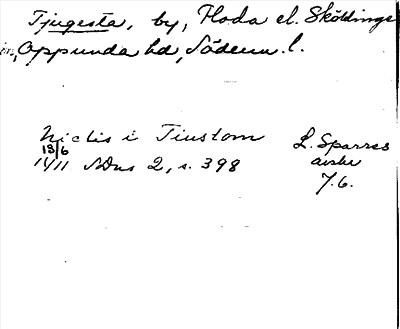 Tjugesta, by, Floda el. Sköldinge
Oppunda hd, Söderm. l.
Niclis i Tiustom
13/6
1411 SDns 2, s. 398
L. Sparres
avskr
7.6.